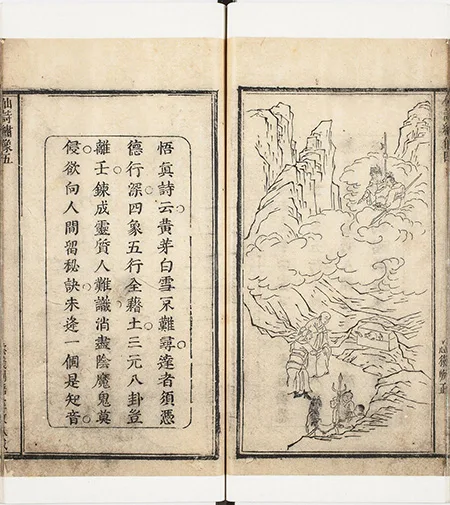 悟眞詩云黄芽白雪不難尋達者須憑
德行深四象五行全藉土三元八卦豈
離壬鍊成靈質人難識消盡陰魔鬼莫
侵欲向人間留秘訣未逢一個是知音
仙詩繡像五